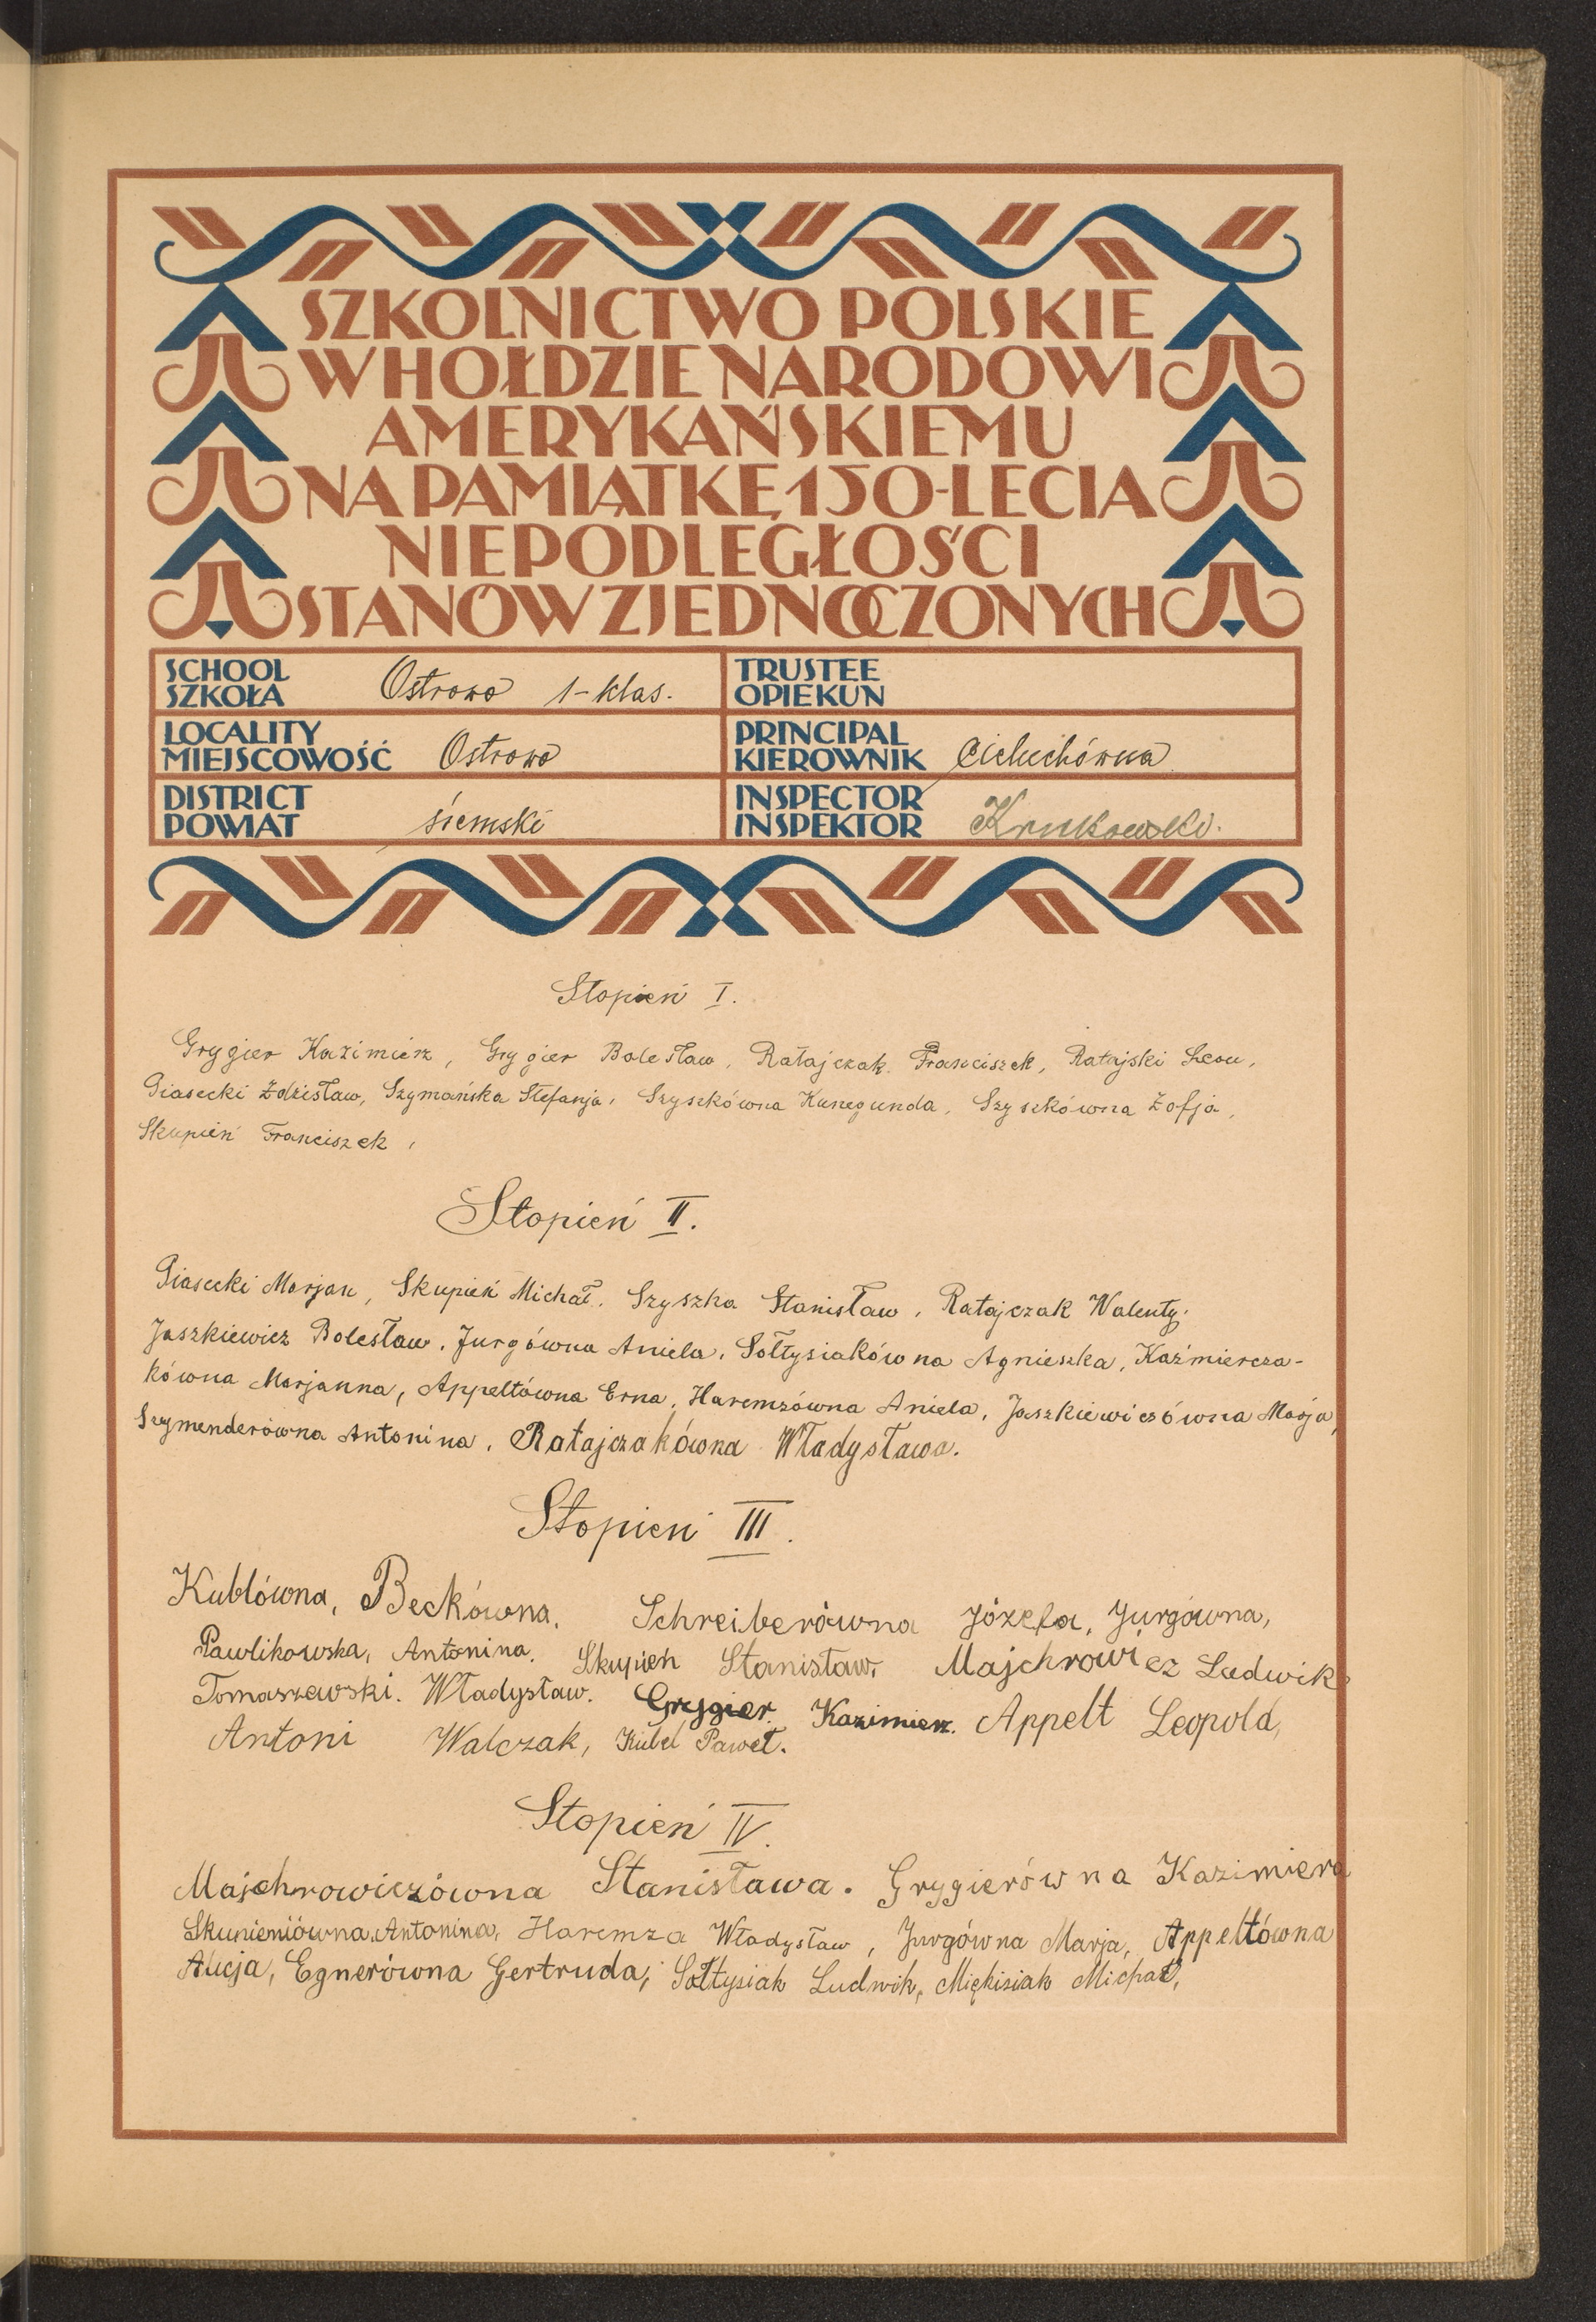 SZKOLNICTWO POLSKIE
W HOŁDZIE NARODOWI
AMERYKAŃSKIEMU
NA PAMIĄTKĘ 150-LECIA
NIEPODLEGŁOŚCI
STANÓW ZJEDNOCZONYCH
SCHOOL
SZKOŁA
Ostrowo 1-klas.
TRUSTEE
OPIEKUN
LOCALITY
MIEJSCOWOŚĆ
Ostrowo
PRINCIPAL
KIEROWNIK
Cichuchówna
DISTRICT
POWIAT
śremski
INSPECTOR
INSPEKTOR
Krukowski.
Stopień I.
Grygier Kazimierz, Grygier Bolesław, Ratajczak Franciszek, Ratajski Leon,
Piasecki Zdzisław, Szymańska Stefanja, Szyszkówna Kunegunda, Szyszkówna Zofja,
Skupień Franciszek,
Stopień II.
Piasecki Marjan, Skupień Michał, Szyszka Stanisław, Ratajczak Walenty,
Jaszkiewicz Bolesław, Jurgówna Aniela, Sołtysiakówna Agnieszka, Kaźmiercza-
kówna Marjanna, Appeltówna Erna, Haremzówna Aniela, Jaszkiewiczówna Marja,
Szymenderówna Antonina, Ratajczakówna Władysława.
Stopień III.
Kublówna, Beckówna, Schreiberówna Józefa, Jurgówna,
Pawlikowska, Antonina. Skupień Stanisław, Majchrowicz Ludwik,
Tomaszewski. Władysław. Grygier Kazimierz. Appelt Leopold,
Antoni Walczak, Kubel Paweł.
Stopień IV.
Majchrowiczówna Stanisława. Grygierówna Kazimiera
Skunieniówna, Antonina, Haremza Władysław, Jurgówna Marja, Appeltówna
Alicja, Egnerówna Gertruda, Sołtysiak Ludwik, Miękisiak Michał,